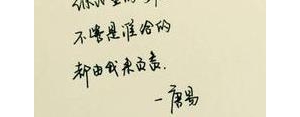 不管是谁给的
都由我来负责.
一唐易